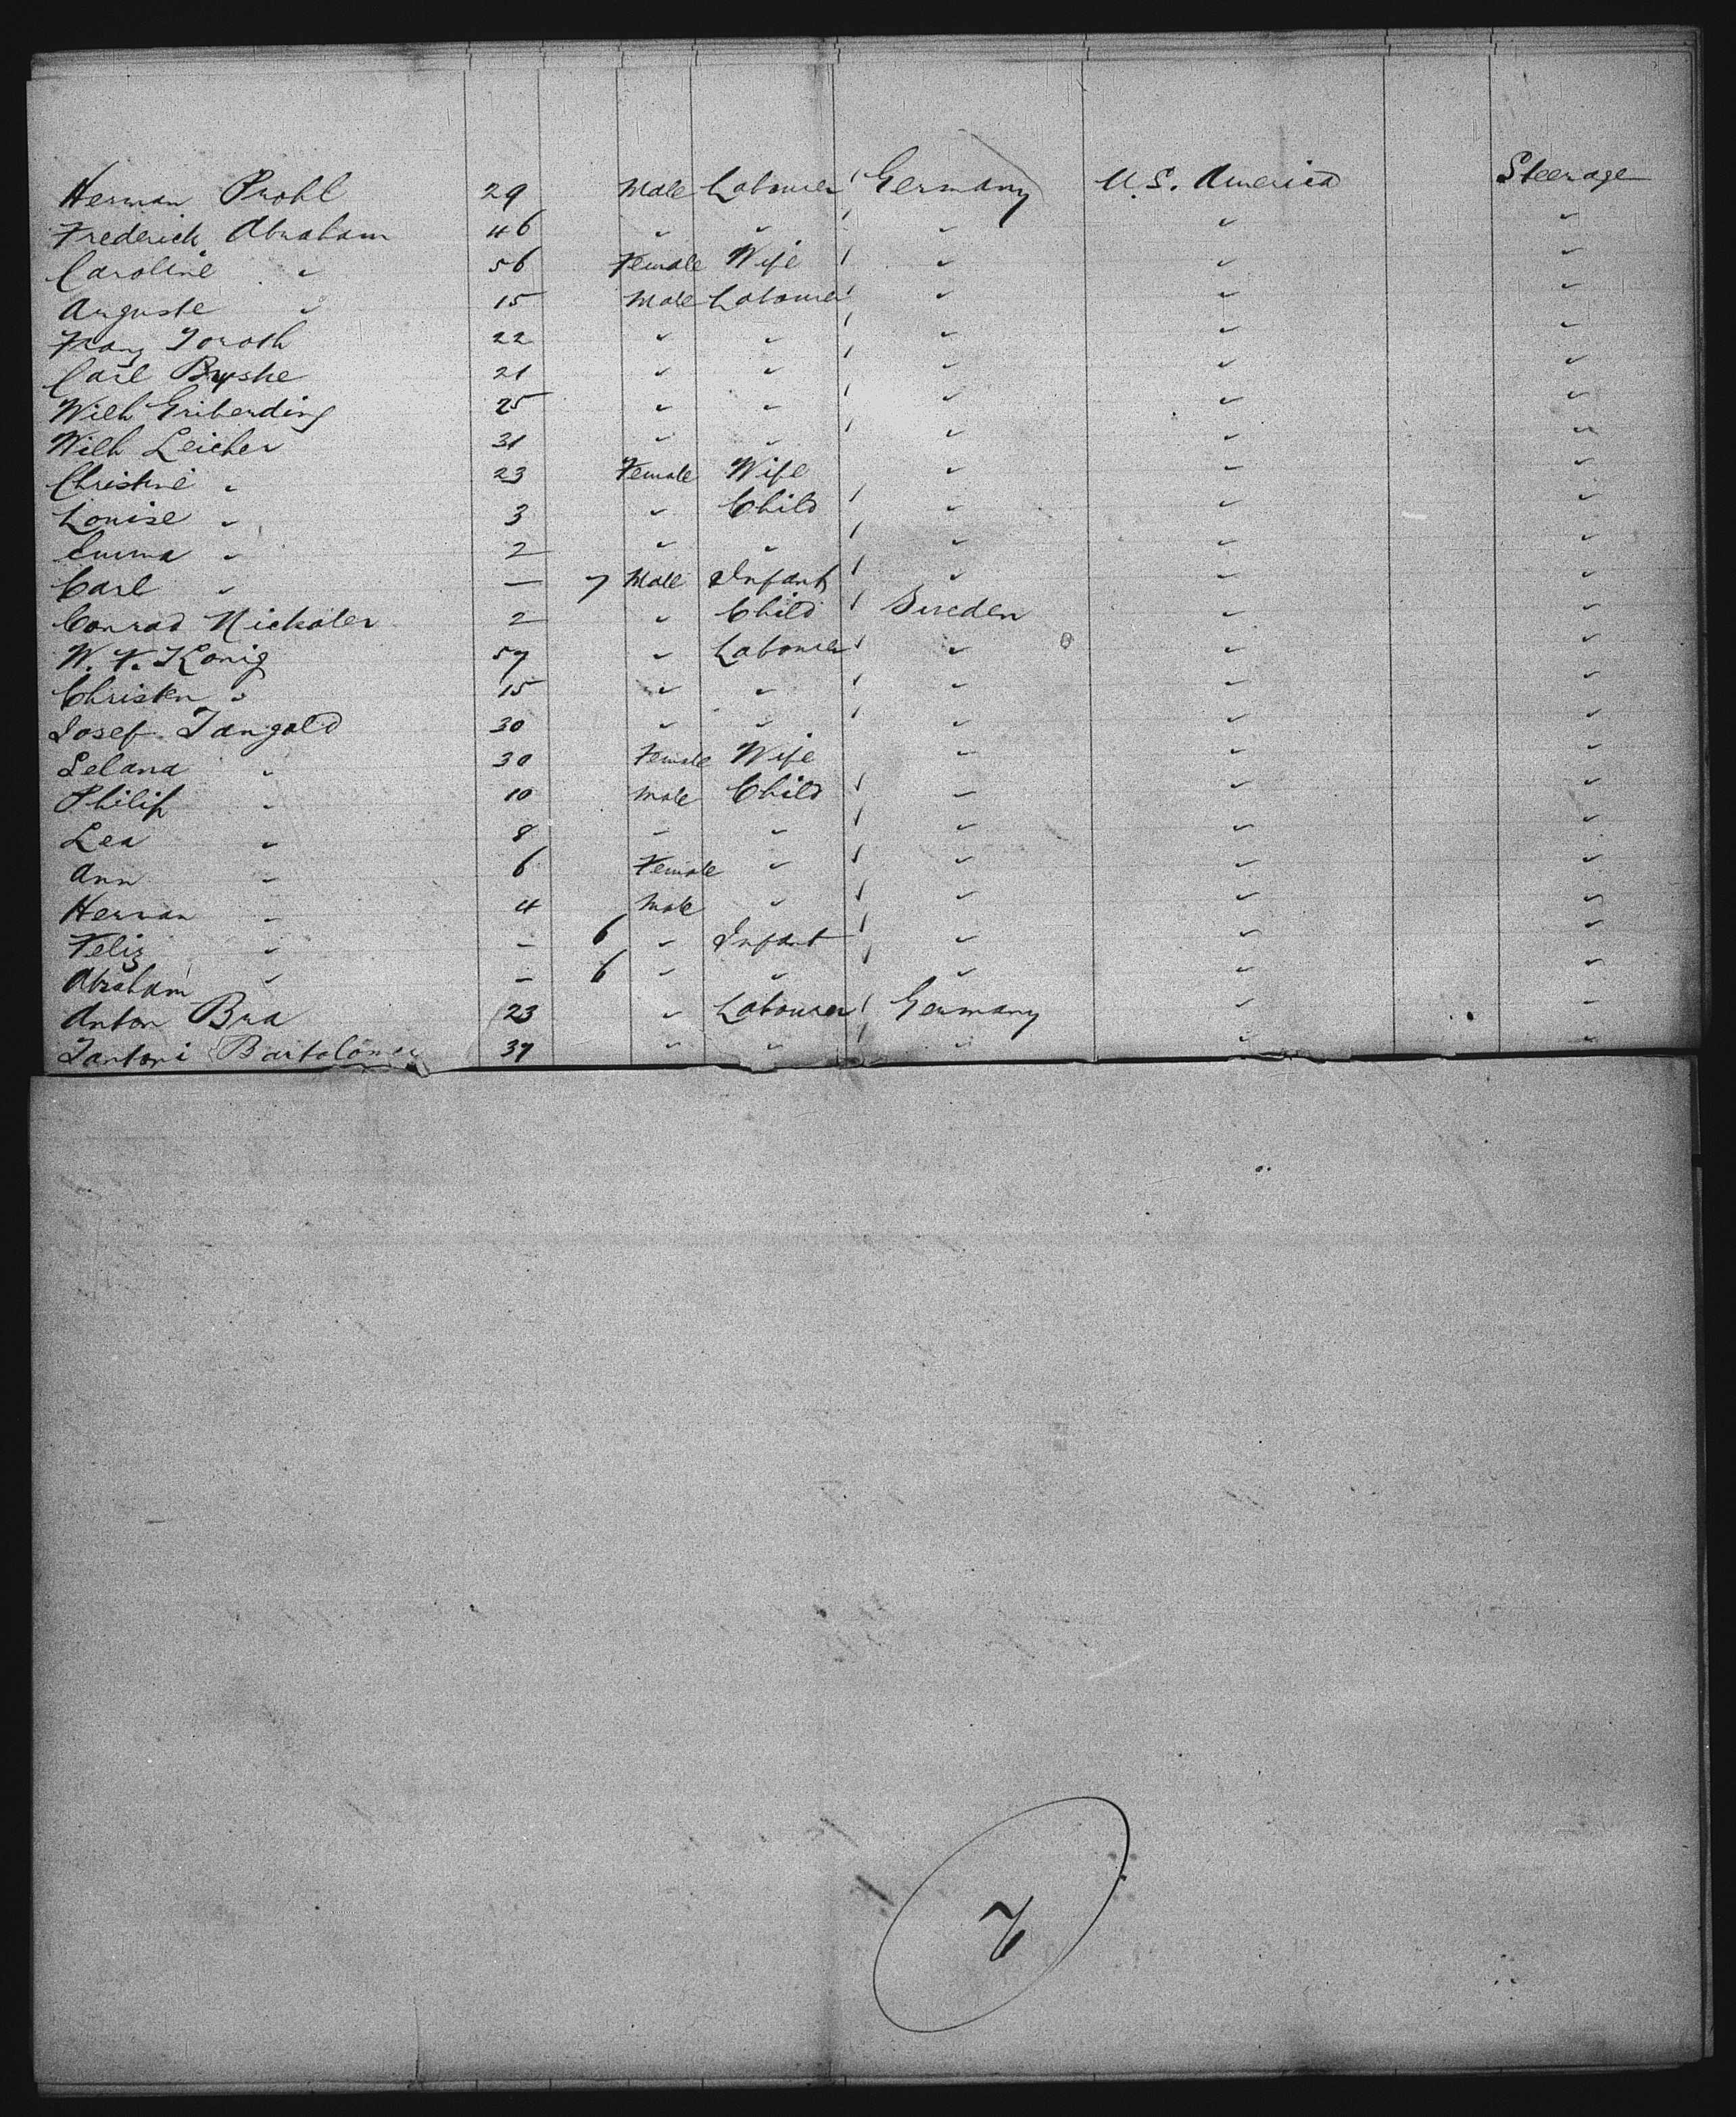 Herman Prohl 29 Male Labourer Germany U.S. America Steerage
Frederick Abraham 46 " " " " "
Caroline " 56 Female Wife " " "
Auguste " 15 Male Labourer " " "
Franz 22 " " " " "
Carl 21 " " " " "
Wilh 25 " " " " "
Wilh Leicher 31 " " " " "
Christine " 23 Female Wife " " "
Louise " 3 " Child " " "
Emma " 2 " " " " "
Carl " — 7 Male Infant " " "
Conrad Nickaler 2 " Child Sweden " "
W. F. Konig 57 " Labourer " " "
Christen " 15 " " " " "
Josef Tangold 30 " " " " "
Lelana " 30 Female Wife " " "
Philip " 10 Male Child " " "
Lea " 8 " " " " "
Ann " 6 Female " " " "
Herman " 4 Male " " " "
Feliz " — 6 " Infant " " "
Abraham " — 6 " " " " "
Anton Bra 23 " Labourer Germany " "
Bartolomeu 37 " " " " "